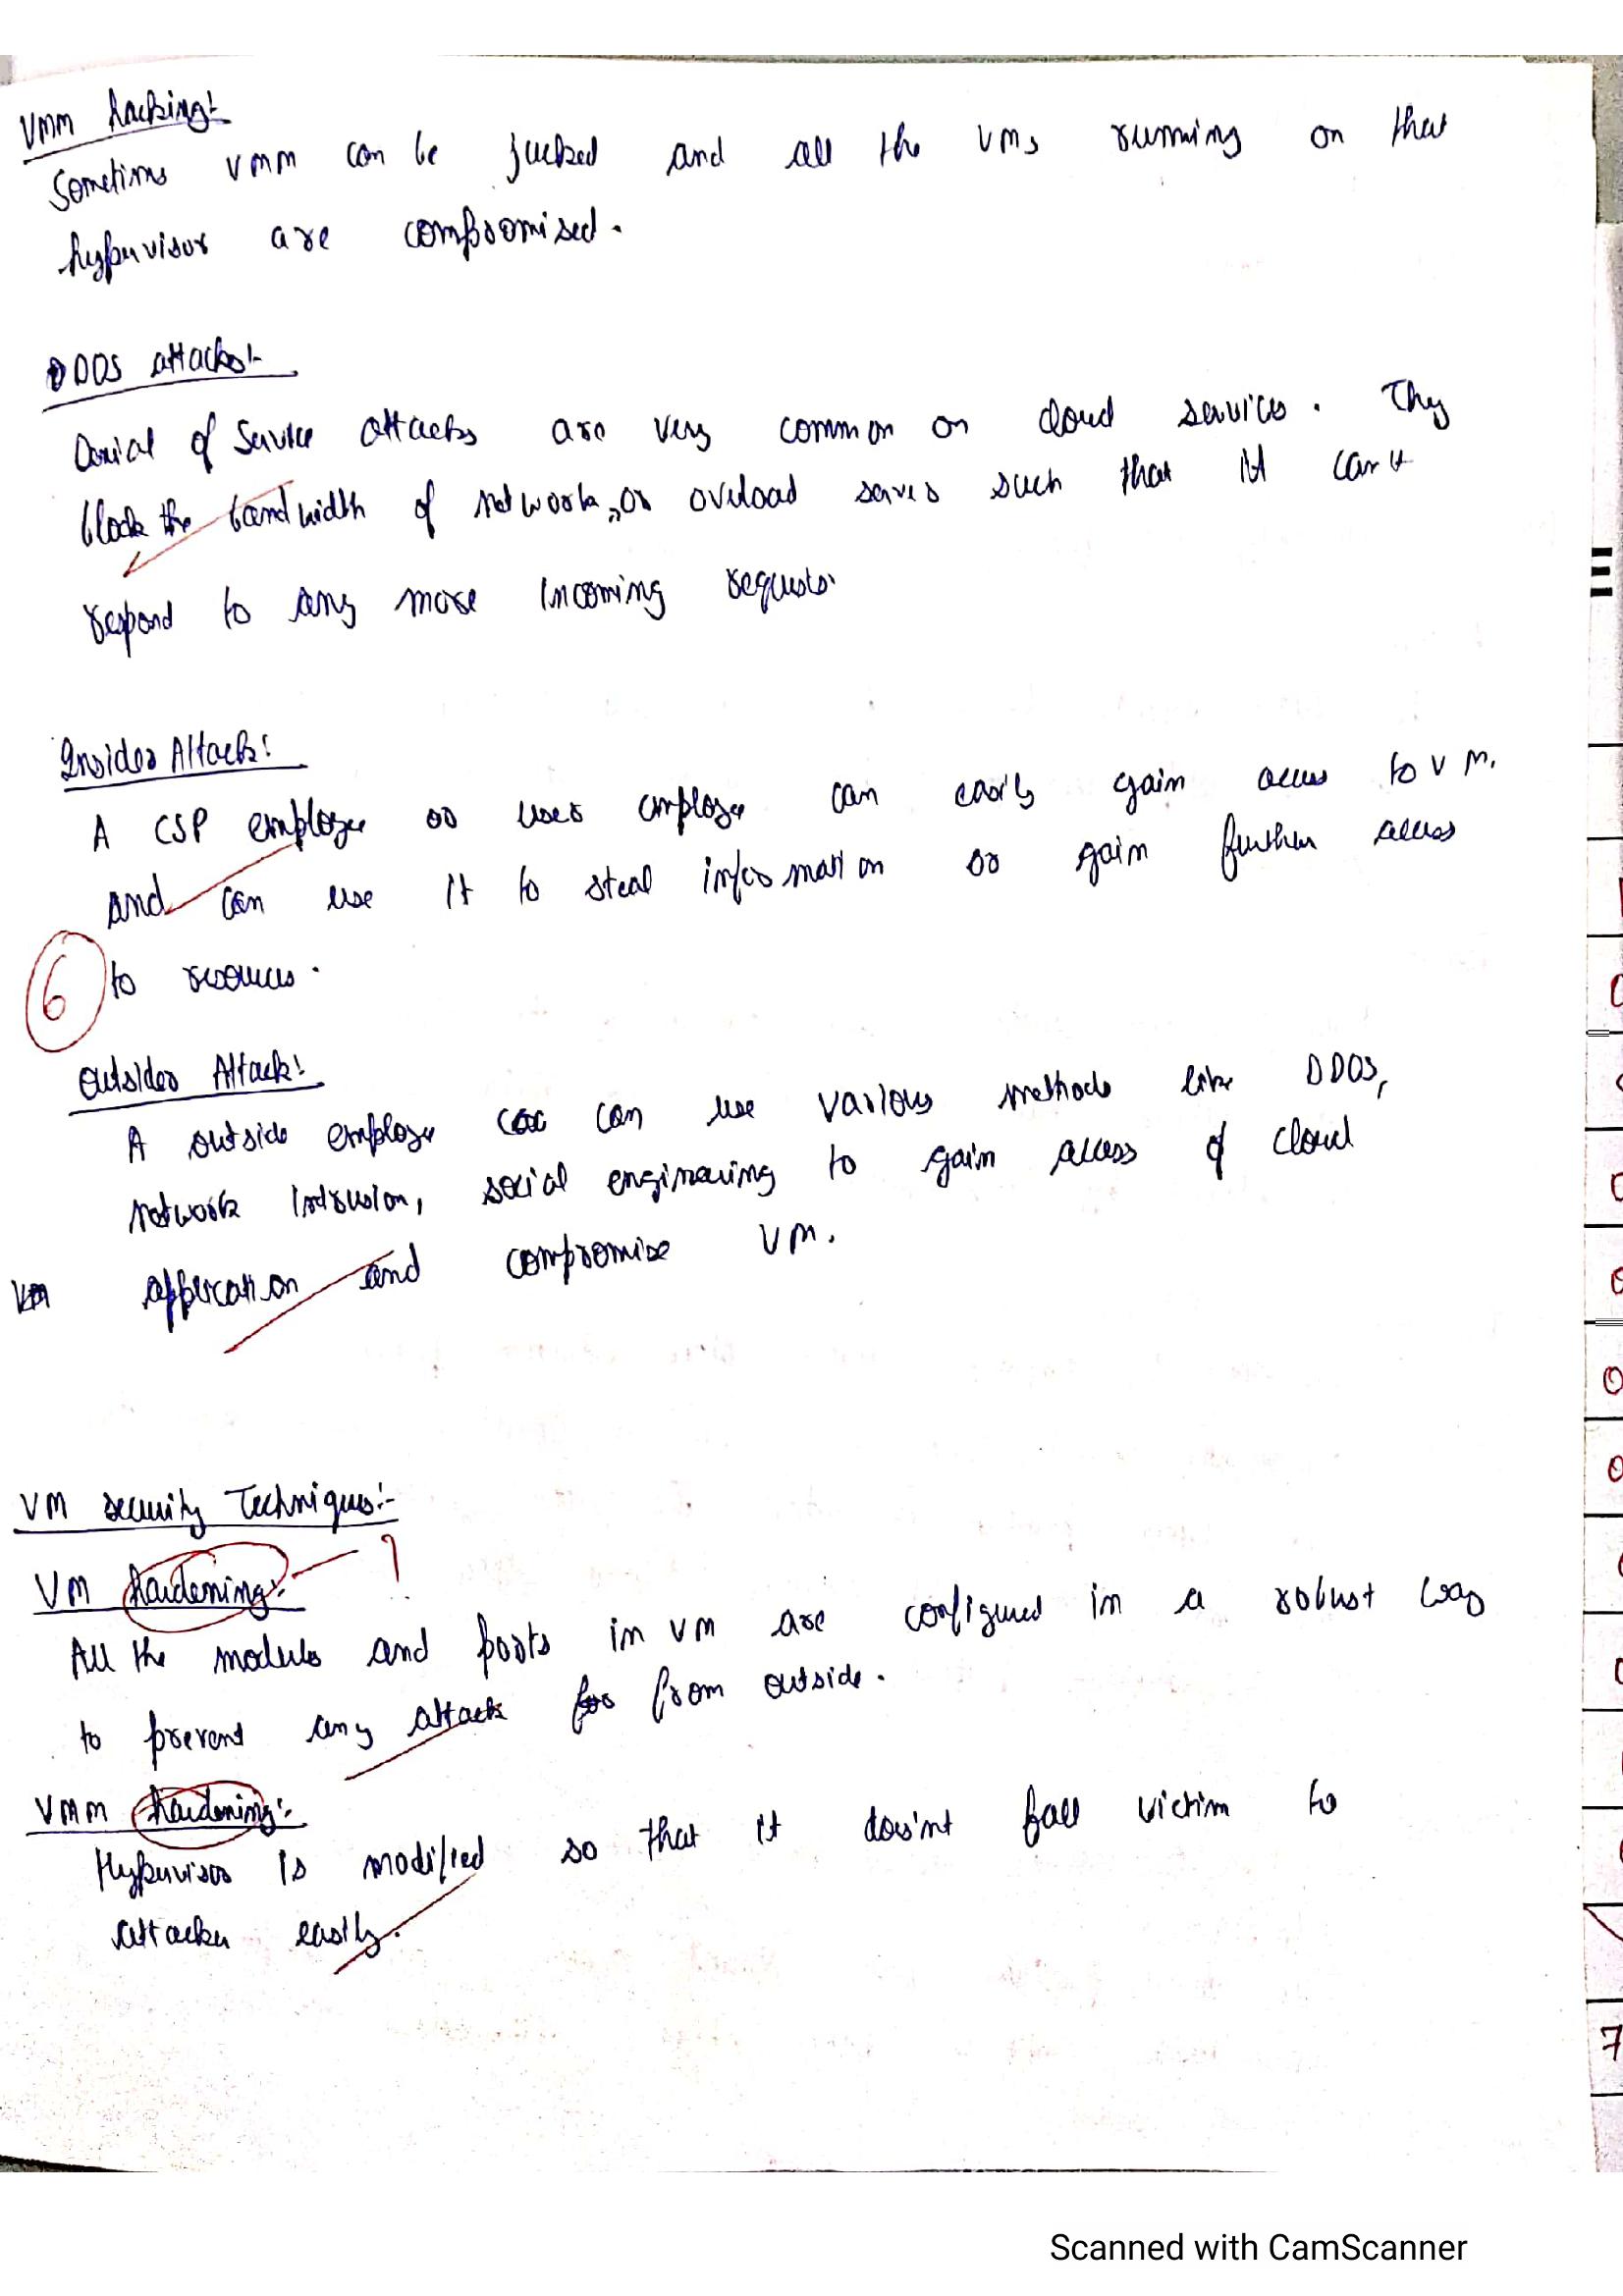 VMM hacking:
Sometims VMM can be jacked and all the VMs running on that
hypervisor are compromised.
DDOS attacks:-
Denial of Service attacks are very common on cloud services. They
block the bandwidth of network, or overload server such that it can't
respond to any more incoming requests.
Insider Attack:
A CSP employee or user employee can easily gain access to VM.
and can use it to steal information or gain further access
6 to resources.
Outsider Attack:
A outside employee can use various methods like DDOS,
network intrusion, social engineering to gain access of cloud
VM application and compromise VM.
VM security Techniques:-
VM hardening:- ?
All the modules and ports in VM are configured in a robust way
to prevent any attack for from outside.
VMM hardening:-
Hypervisor is modified so that it does'nt fall victim to
attacker easily.
7
Scanned with CamScanner